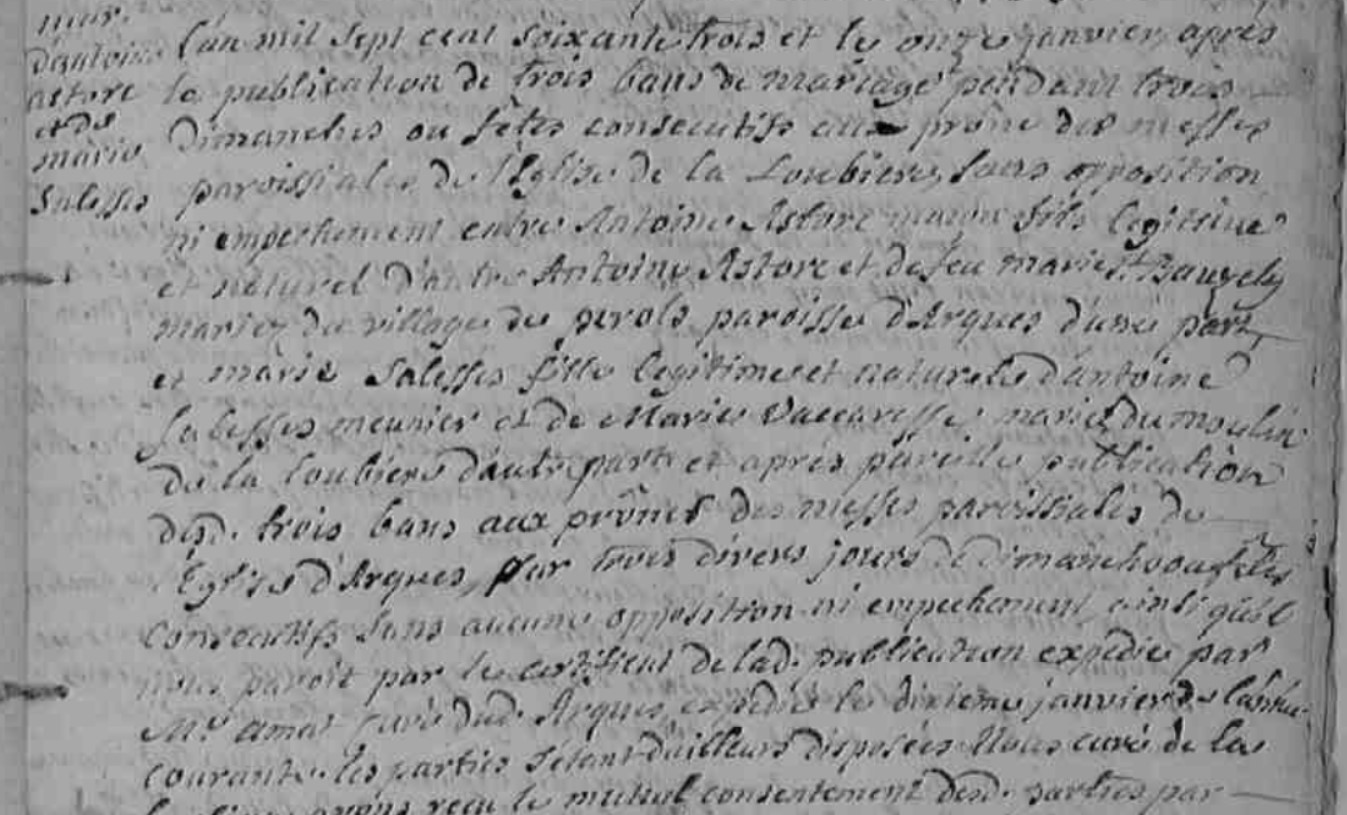 mar.
d'antoine
astorc
et de
marie
Salesses
L'an mil sept cent soixante trois et le onze janvier, apres
la publication de trois bans de mariage pendant trois
Dimanches ou fêtes consecutifs aux prône des messes
paroissiales de l'Eglise de la Loubiere, sans opposition
ni empechement entre Antoine Astorc fils legitime
et naturel d'autre Antoine Astorc et de feu marie St Bauzely
mariez du village de perols paroisse d'Arques d'une part
et marie Salesses fille legitime et naturele d'antoine
Salesses meunier et de Marie Vaccaresse mariés du moulin
de la Loubiere d'autre part et après pareille publication
desd. trois bans aux prônes des messes paroissiales de
l'Eglise d'Arques, par trois divers jours de dimanche ou fêtes
consecutifs sans aucune opposition ni empechement ainsi qu'il
nous paroit par le certificat de lad. publication expediée par
Mr. Amat curé dud. Arques, expedié le dixieme janvier de l'année
courante. les parties s'étant d'ailleurs disposées Nous curé de la
avons reçu le mutuel consentement desd. parties par